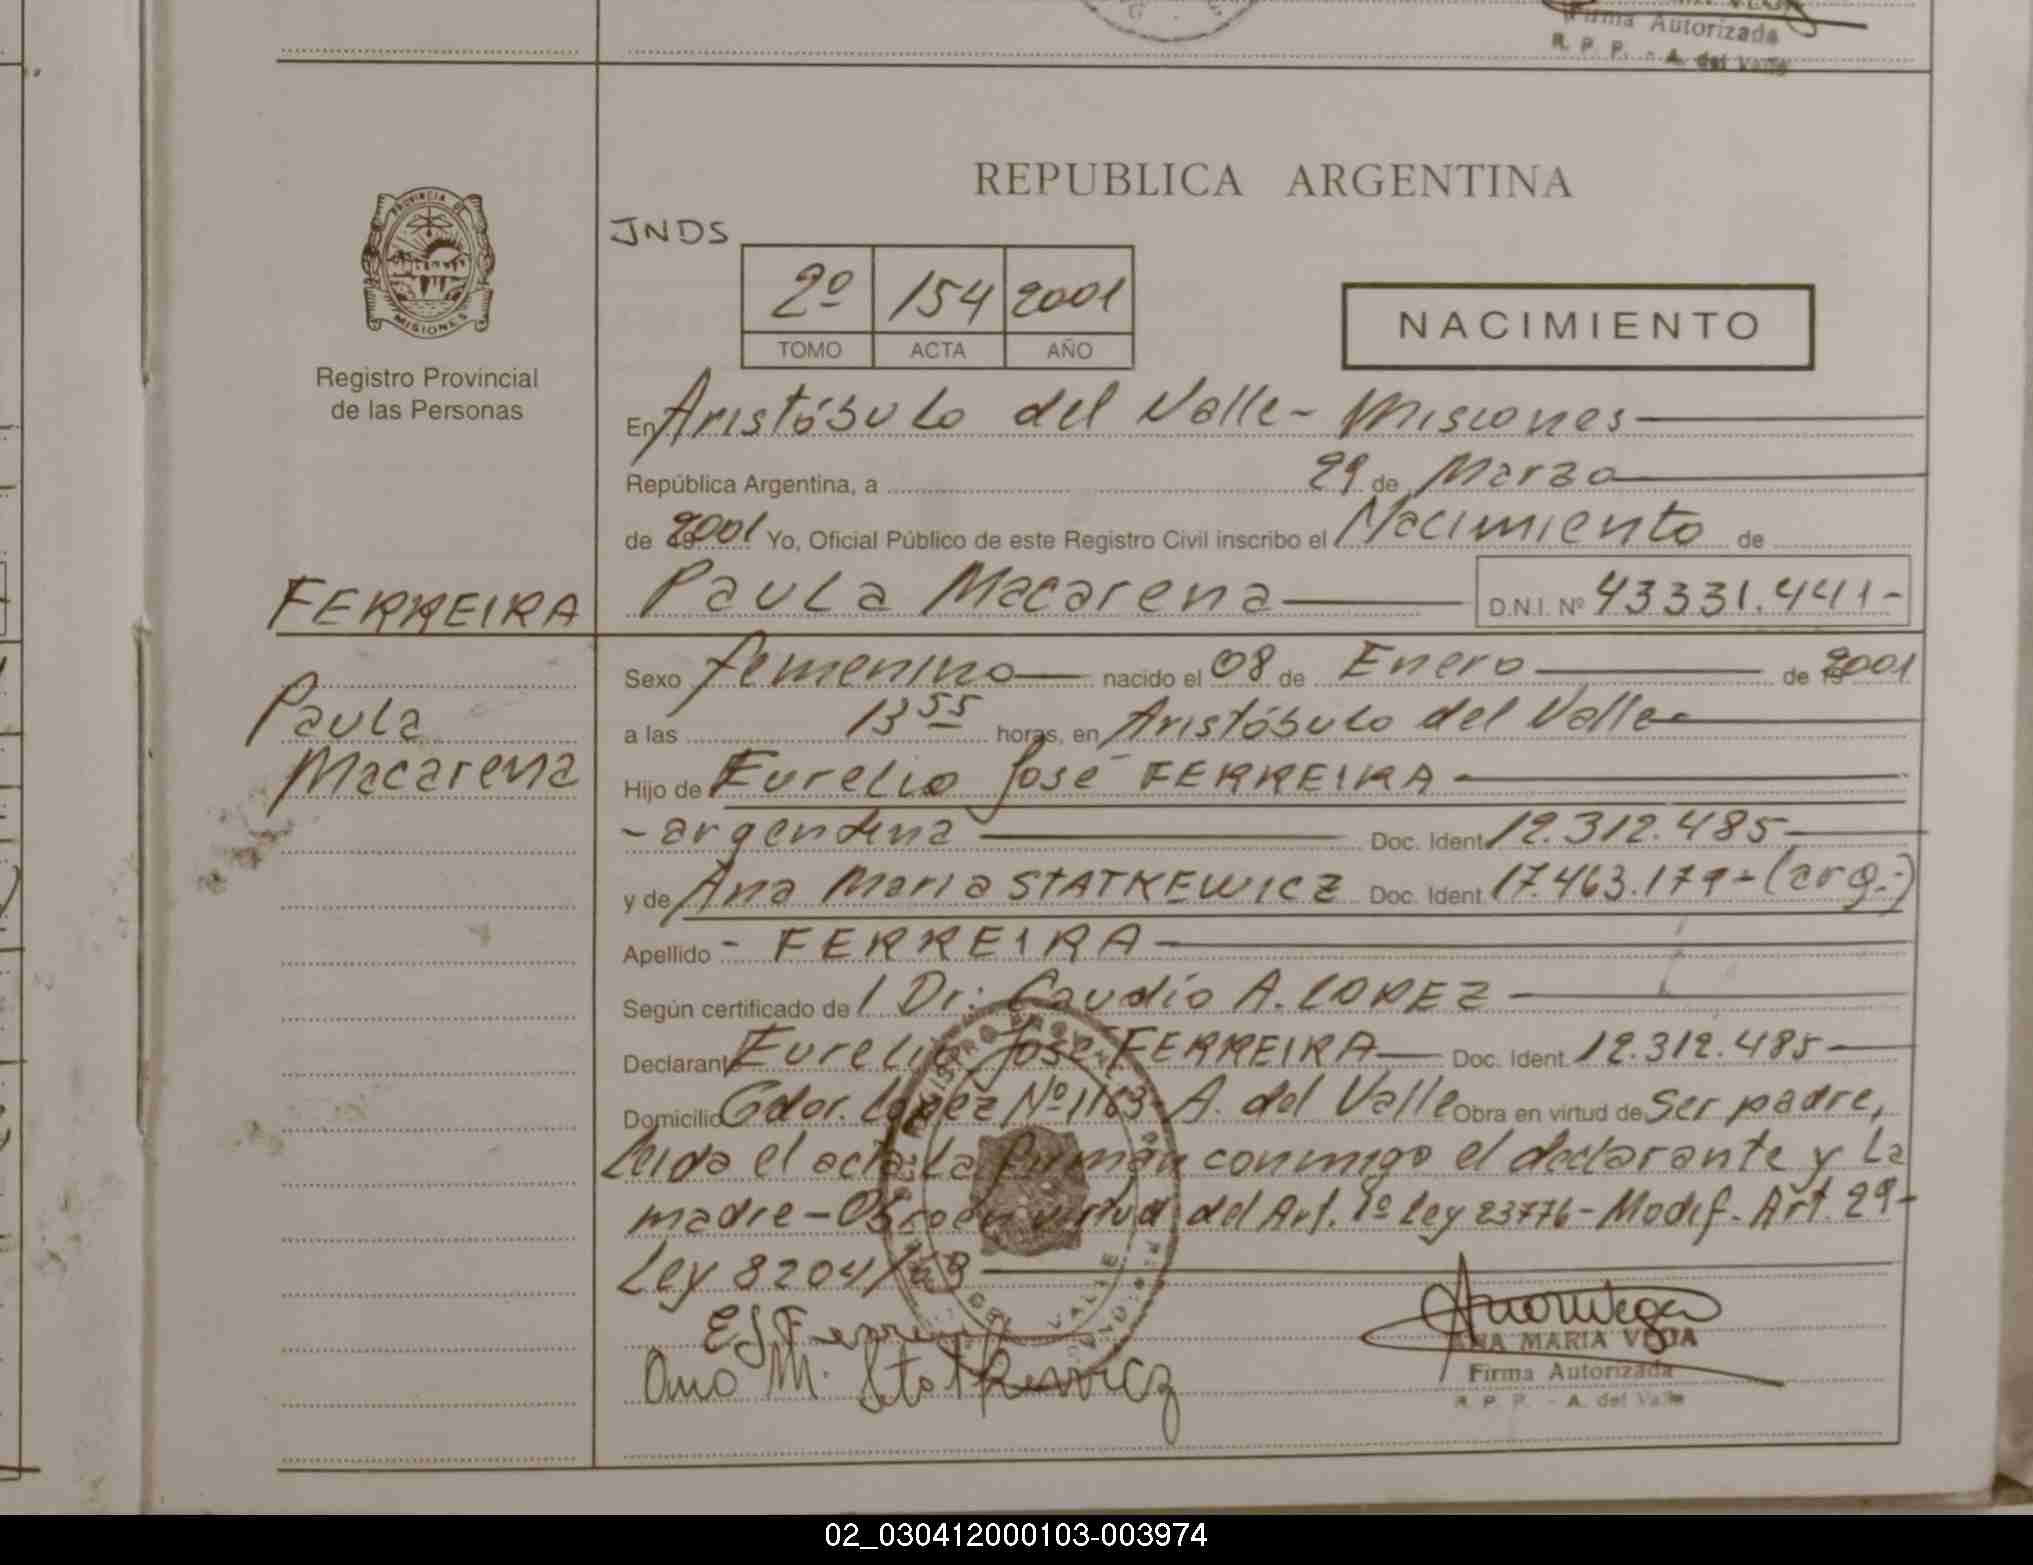 Firma Autorizada
R. P. P. - A. del Valle
PROVINCIA DE
MISIONES
Registro Provincial
de las Personas
REPUBLICA ARGENTINA
JNDS
2º 154 2001
TOMO ACTA AÑO
NACIMIENTO
En Aristóbulo del Valle - Misiones
República Argentina, a 29 de Marzo
de 2001 Yo, Oficial Público de este Registro Civil inscribo el Nacimiento de
FERREIRA Paula Macarena D.N.I. Nº 43331.441-
Paula
Macarena
Sexo femenino nacido el 08 de Enero de 2001
a las 13 55 horas, en Aristóbulo del Valle-
Hijo de Eurelio José FERREIRA
- argentina Doc. Ident. 12.312.485
y de Ana Maria STATKEWICZ Doc. Ident. 17.463.179-(arg.-)
Apellido - FERREIRA
Según certificado de l Dr: Caudio A. LOPEZ
Declarante Eurelio José FERREIRA Doc. Ident. 12.312.485
Domicilio Gdor. López Nº 1163- A. del Valle Obra en virtud de ser padre,
Leida el acta La firman conmigo el declarante y La
madre - Obro en virtud del Art. 1º Ley 23776 - Modif. Art. 29-
Ley 8204/63
EJFerreira
Ana M. Statkewicz
ANA MARIA VEGA
Firma Autorizada
R. P. P. - A. del Valle
02_030412000103-003974